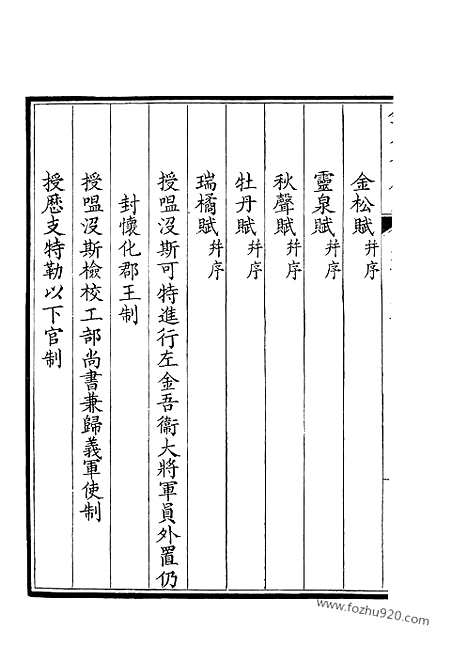 金松賦并序
靈泉賦并序
秋聲賦并序
牡丹賦并序
瑞橘賦并序
授嗢沒斯可特進行左金吾衛大將軍員外置仍
封懷化郡王制
授嗢沒斯檢校工部尚書兼歸義軍使制
授歷支特勒以下官制
www.fozhu920.com